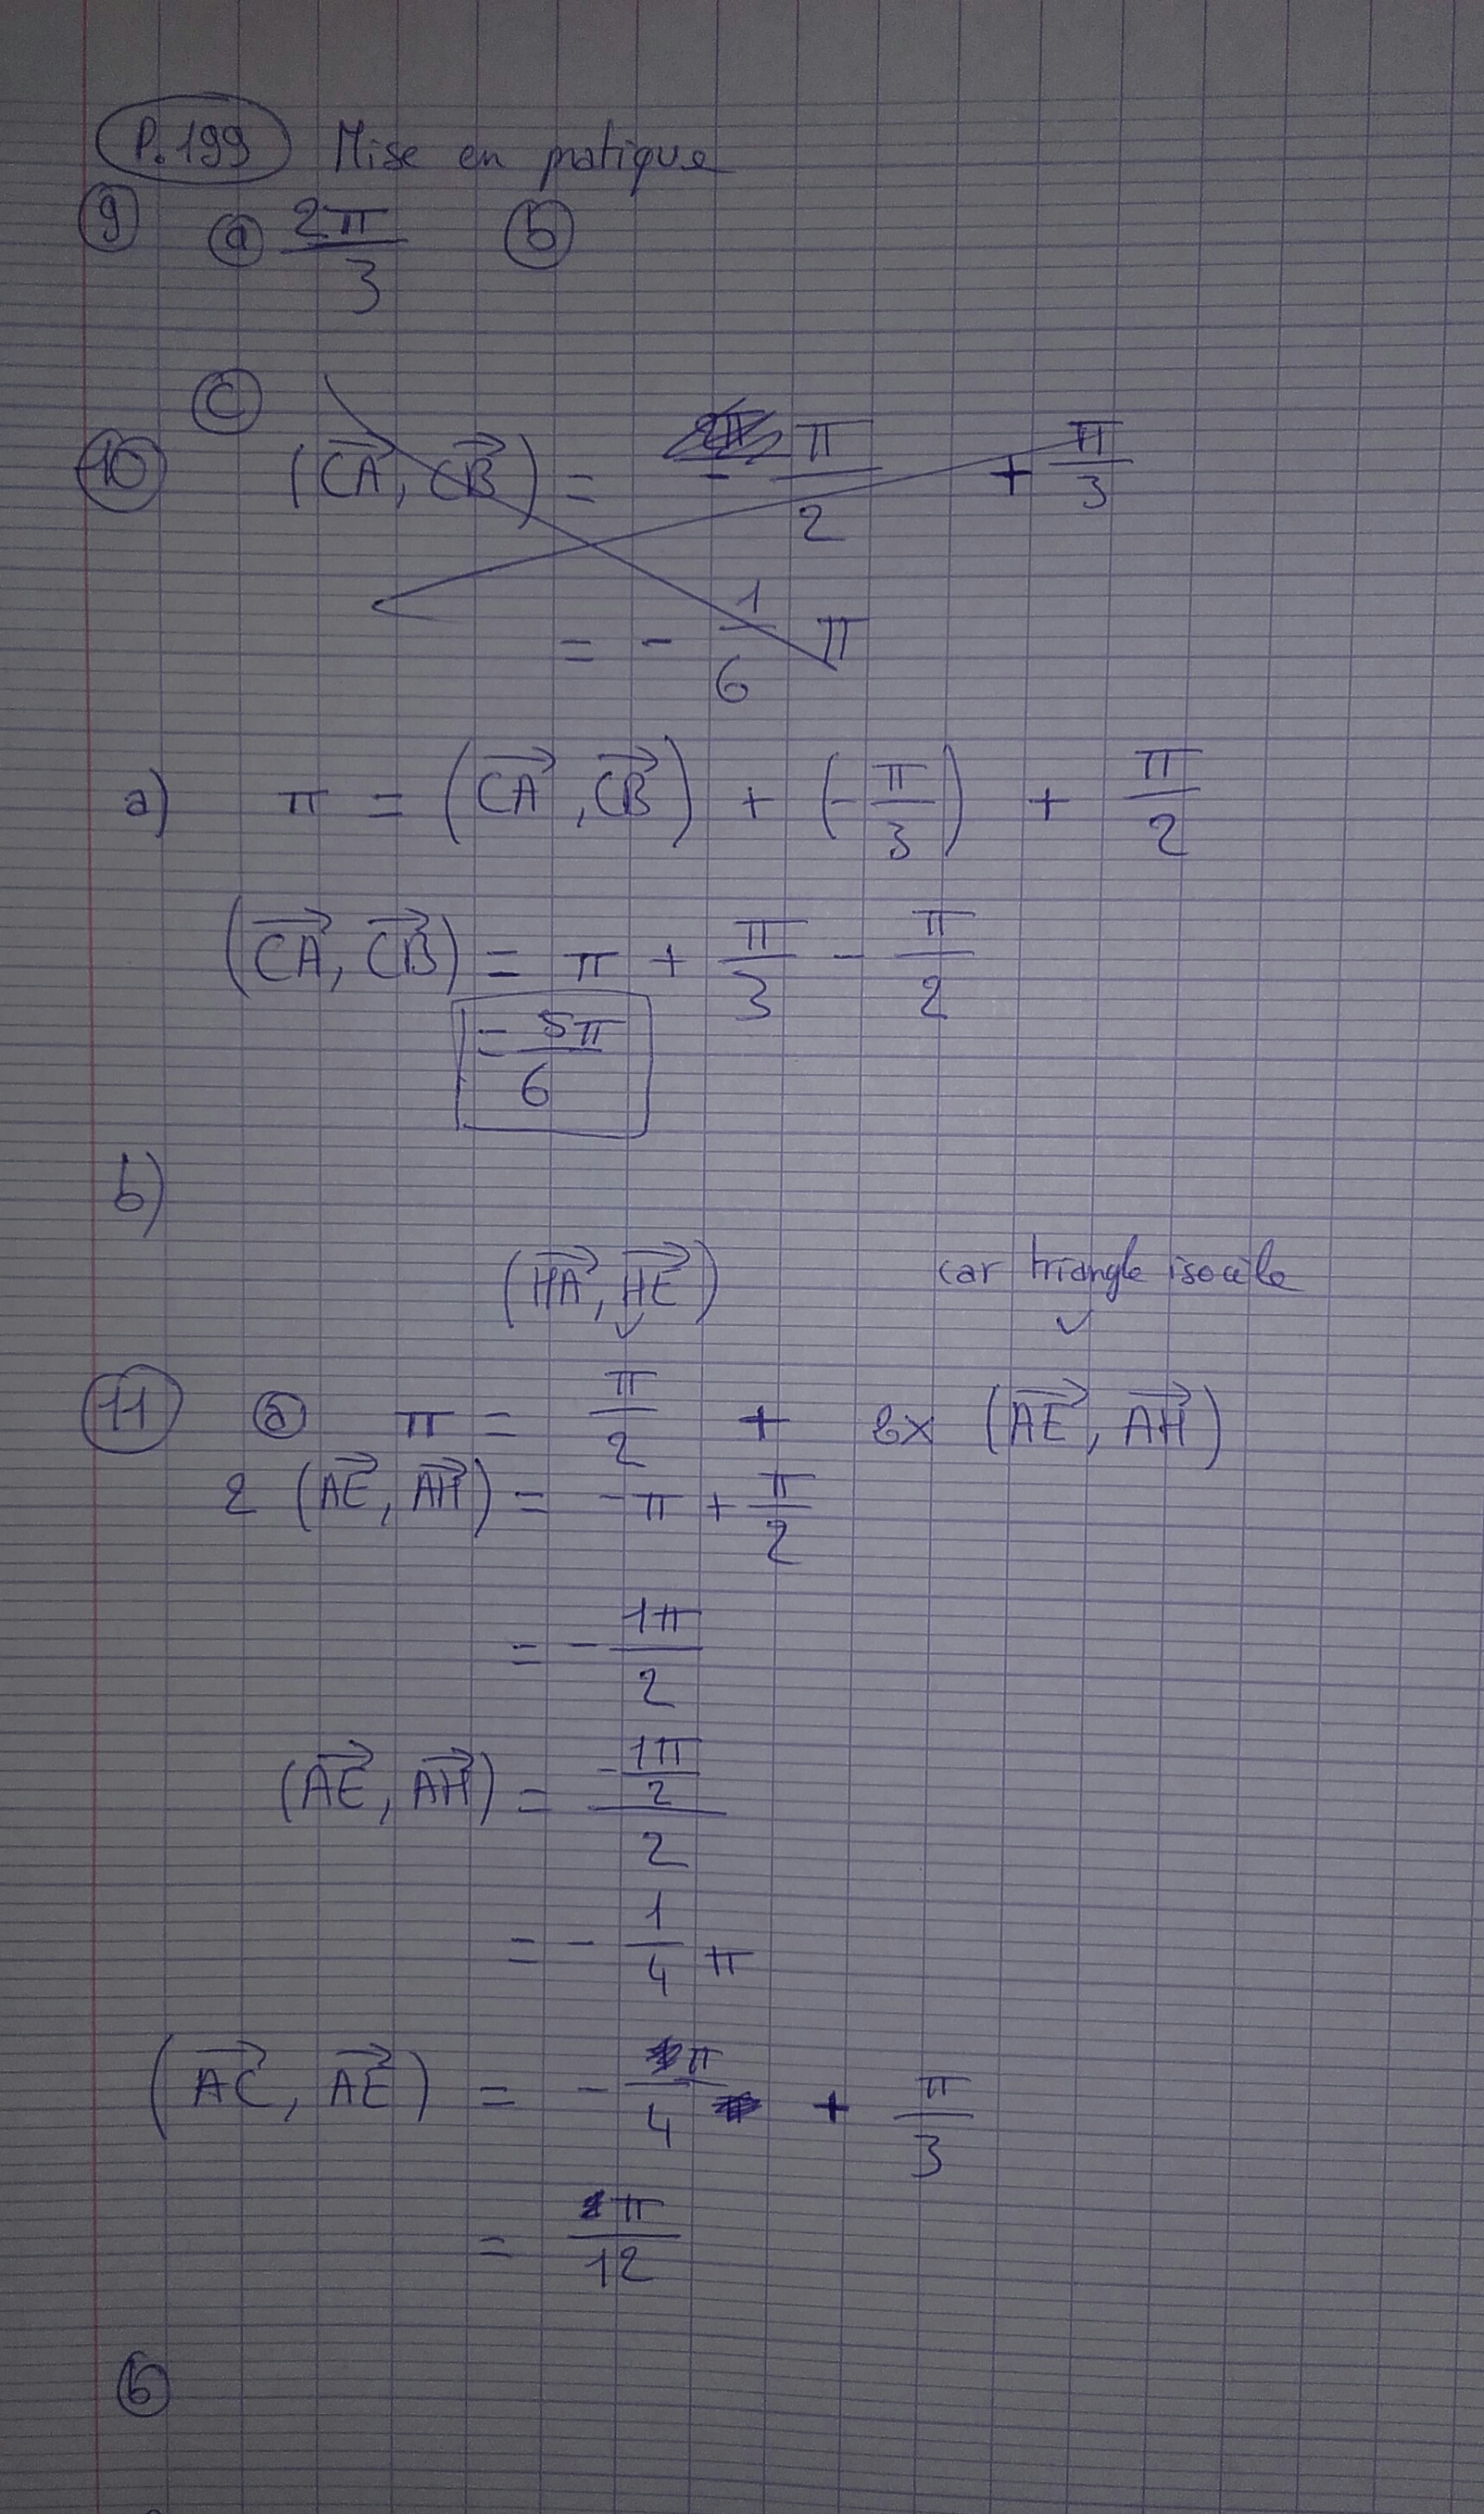 P.199 Mise en pratique
9 a 2π/3 b
c
10 (CA, CB) = - π/2 + π/3
= - 1/6 π
a) π = (CA, CB) + (-π/3) + π/2
(CA, CB) = π + π/3 - π/2
= 5π/6
b)
(HA, HE) car triangle isocèle
11 a π = π/2 + 2x (AE, AH)
2 (AE, AH) = -π + π/2
= - 1π/2
(AE, AH) = (-1π/2)/2
= - 1/4 π
(AC, AE) = - π/4 + π/3
= π/12
b